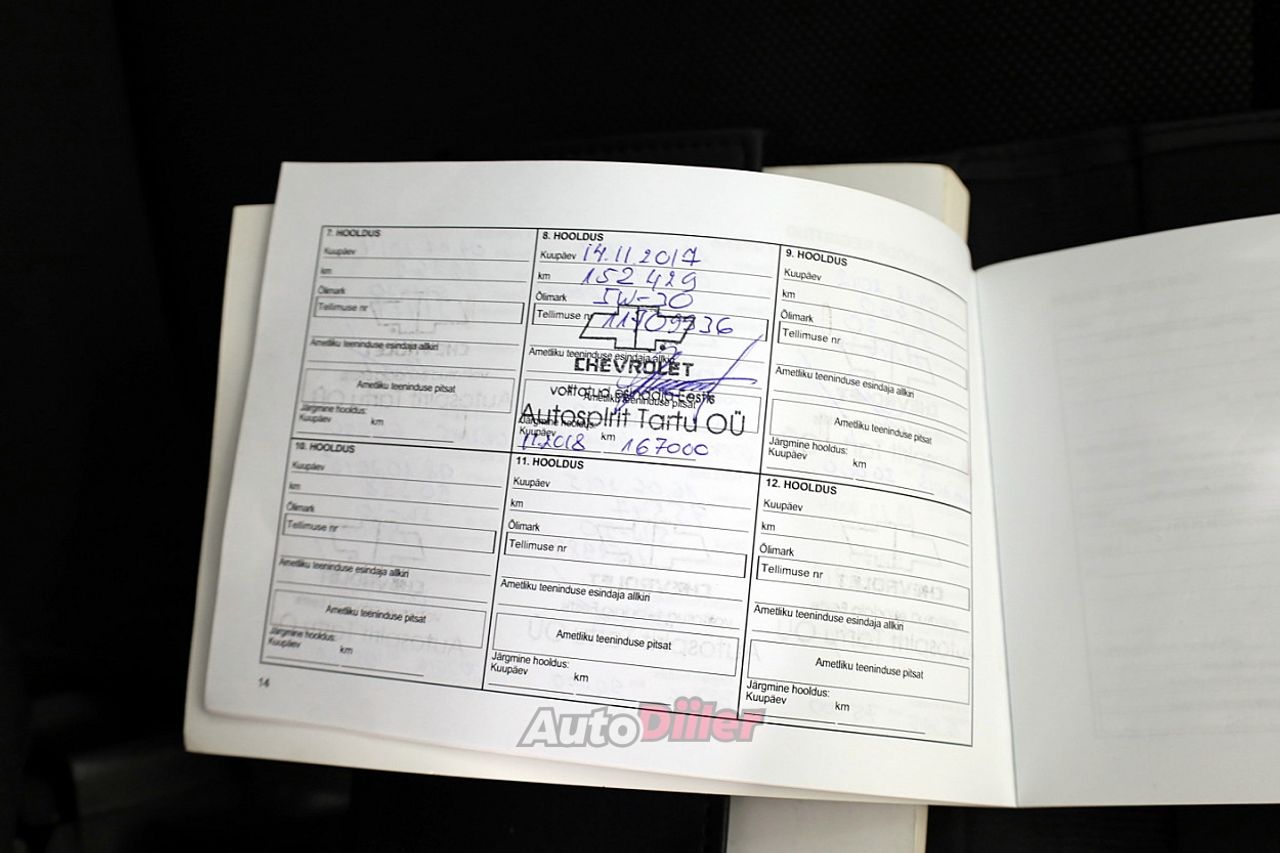 7. HOOLDUS
Kuupäev
km
Õlimark
Tellimuse nr
Ametliku teeninduse esindaja allkiri
Ametliku teeninduse pitsat
Järgmine hooldus:
Kuupäev km
8. HOOLDUS
Kuupäev 14.11.2017
km 152 429
Õlimark 5W-30
Tellimuse nr 11709836
Ametliku teeninduse esindaja allkiri
CHEVROLET
volitatud esindaja Eestis
Ametliku teeninduse pitsat
Autospirit Tartu OÜ
Järgmine hooldus:
Kuupäev km
11.2018 167000
9. HOOLDUS
Kuupäev
km
Õlimark
Tellimuse nr
Ametliku teeninduse esindaja allkiri
Ametliku teeninduse pitsat
Järgmine hooldus:
Kuupäev km
10. HOOLDUS
Kuupäev
km
Õlimark
Tellimuse nr
Ametliku teeninduse esindaja allkiri
Ametliku teeninduse pitsat
Järgmine hooldus:
Kuupäev km
11. HOOLDUS
Kuupäev
km
Õlimark
Tellimuse nr
Ametliku teeninduse esindaja allkiri
Ametliku teeninduse pitsat
Järgmine hooldus:
Kuupäev km
12. HOOLDUS
Kuupäev
km
Õlimark
Tellimuse nr
Ametliku teeninduse esindaja allkiri
Ametliku teeninduse pitsat
Järgmine hooldus:
Kuupäev km
14
AutoDiiler